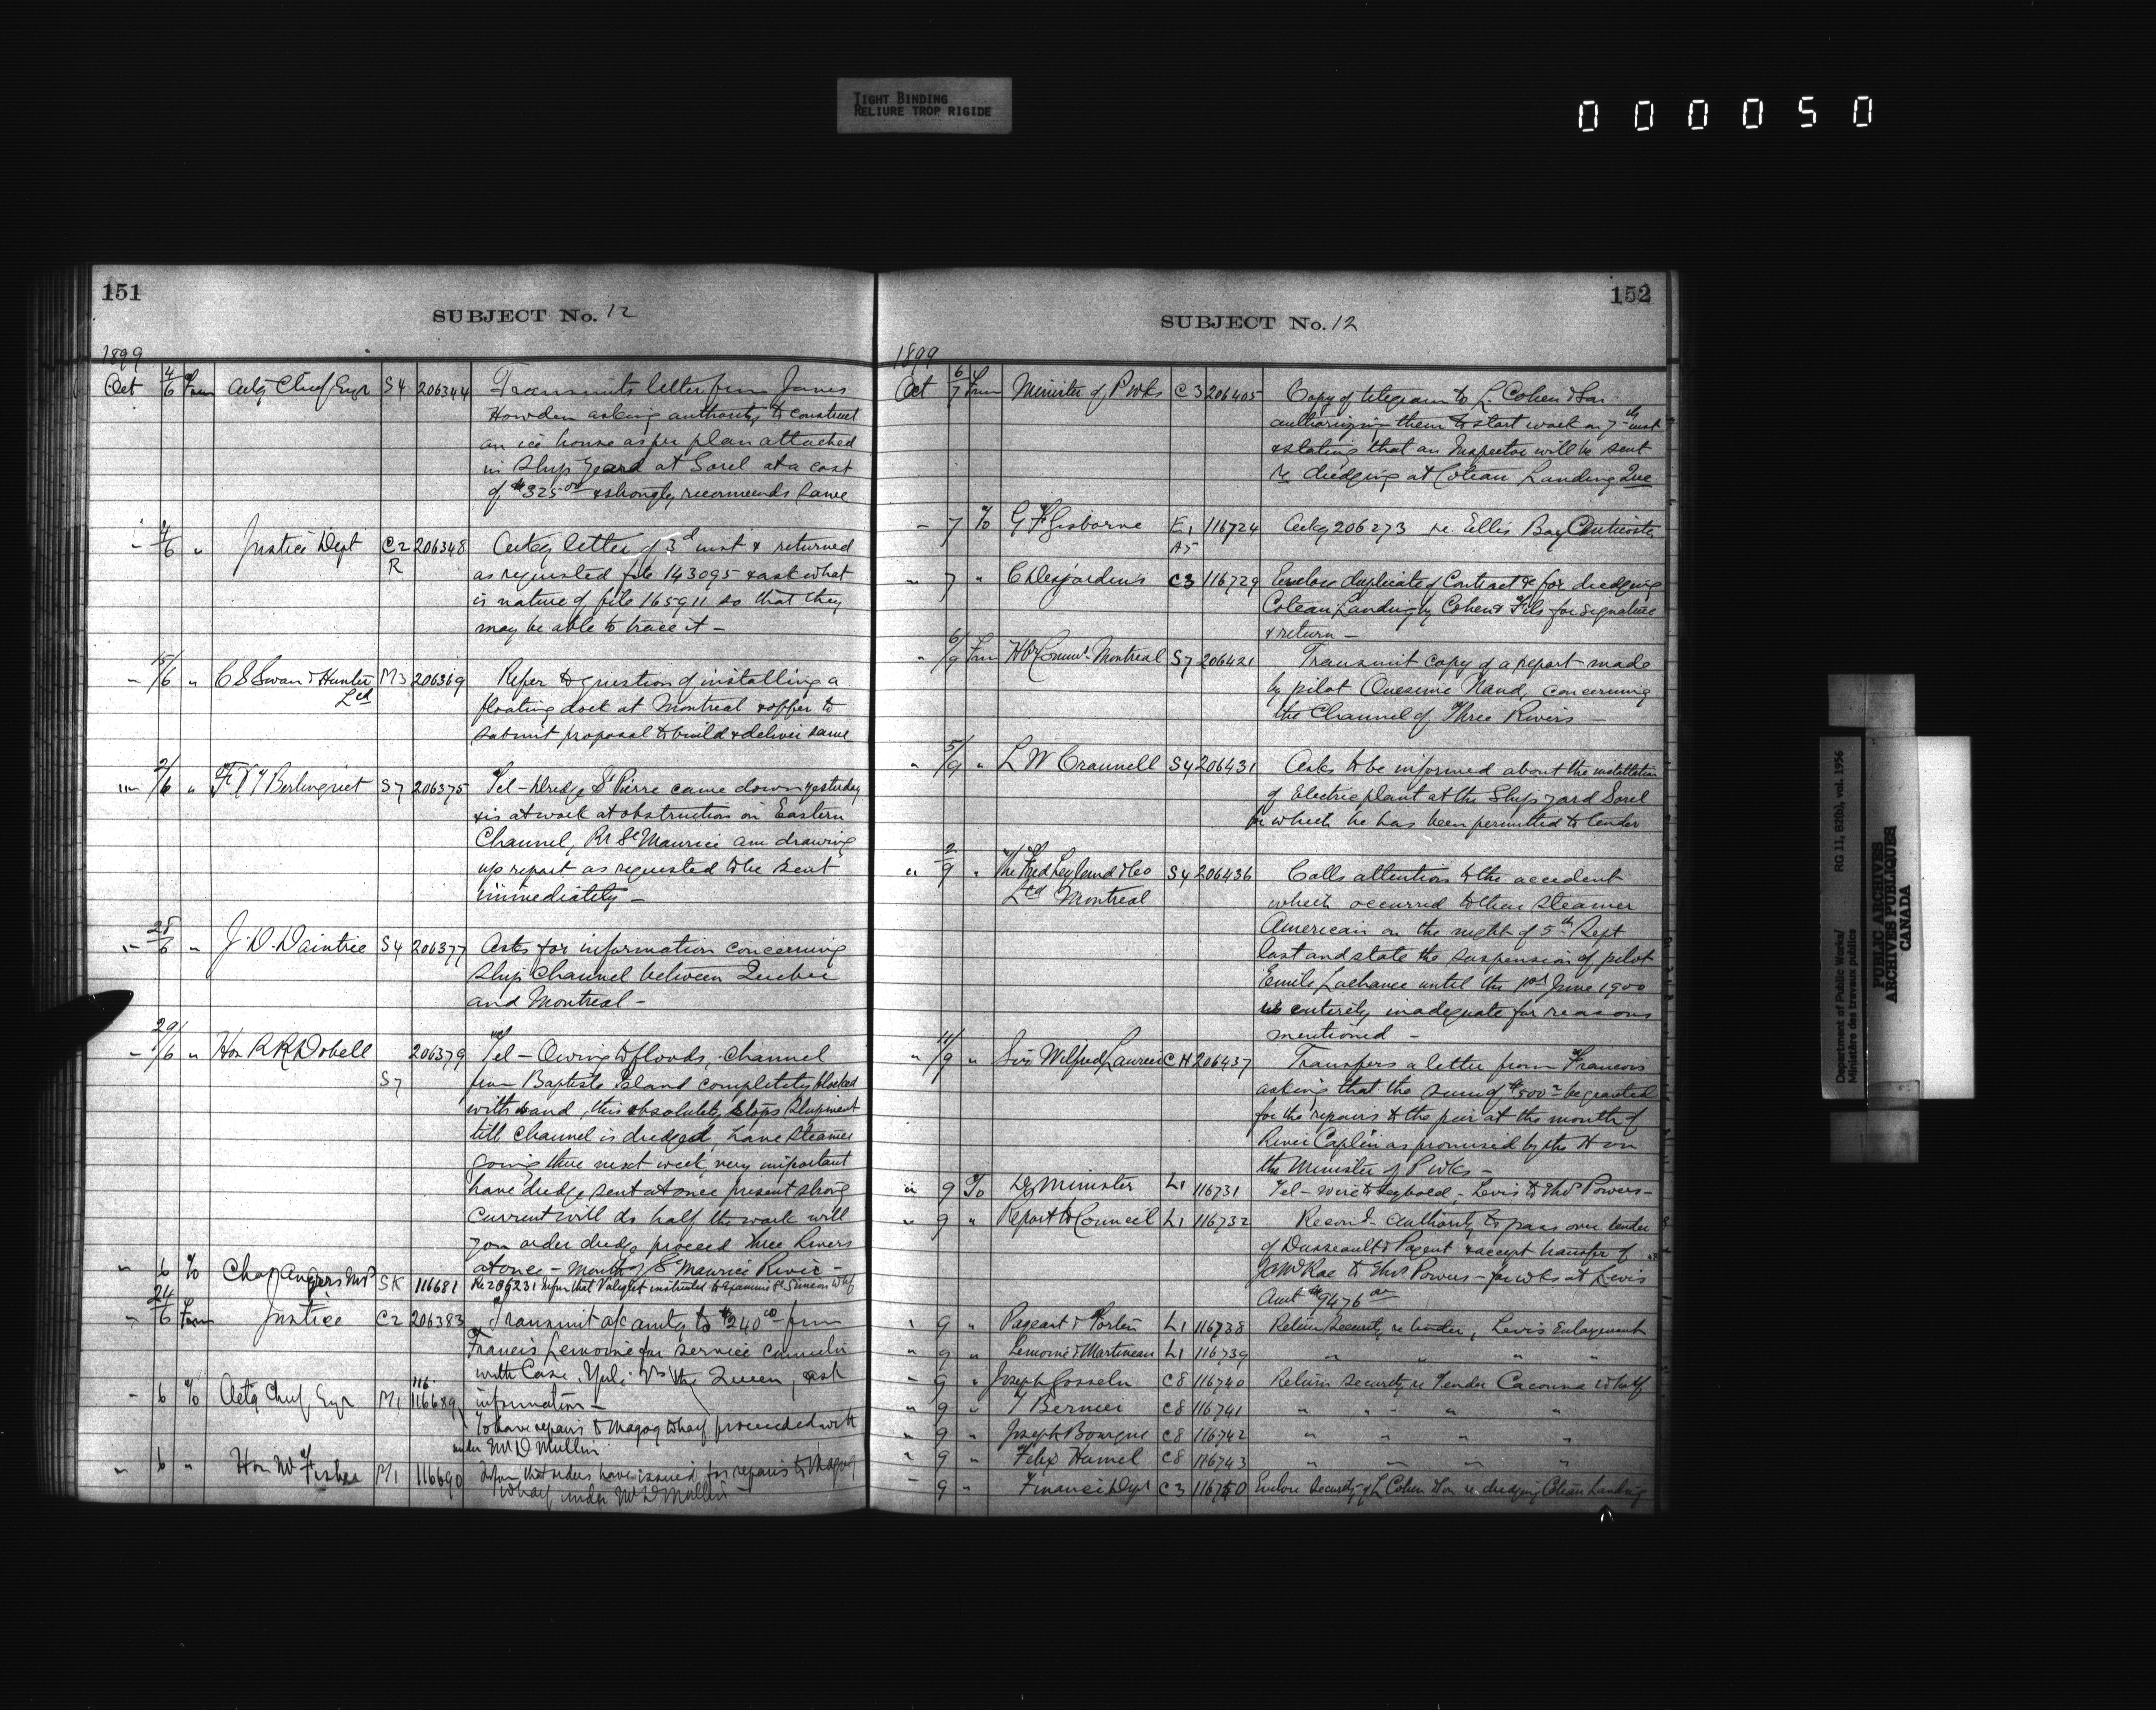 TIGHT BINDING
RELIURE TROP RIGIDE
000050
151
SUBJECT No. 12
1899
Oct 4/6 From Actg Chief Engr S4 206344 Transmits letter from James
Howden asking authority to construct
an ice house as per plan attached
in Ship Yard at Sorel at a cost
of $325.00 & strongly recommends same
" 4/6 " Justice Dept C2 R 206348 Ackg letter of 3d inst & returned
as requested file 143095 & ask what
is nature of file 165911 so that they
may be able to trace it —
" 15/6 " C S Swan & Hunter Ltd M3 206369 Refer to question of installing a
floating dock at Montreal & offer to
submit proposal to build & deliver same
" 2/6 " F X T Berlinguet S7 206375 Tel – Dredge St Pierre came down yesterday
& is at work at obstruction in Eastern
Channel, Rr St Maurice am drawing
up report as requested to be sent
immediately —
" 25/6 " J. D. Daintrie S4 206377 Asks for information concerning
Ship Channel between Quebec
and Montreal —
" 29/6 " Hon R R Dobell S7 206379 Tel – Owing to floods, channel
from Baptiste Island completely blocked
with sand, this absolutely stops shipment
till channel is dredged, have steamer
going there next week, very important
have dredge sent at once present strong
current will do half the work will
you order dredge proceed Three Rivers
at once – mouth of St Maurice River —
" 6 To Chas Angers MP SK 116681 Re 206231 Inform that Valiquet instructed to examine St Simeon Whf
" 24/6 From Justice C2 206383 Transmit a/c amtg to $240.00 from
Francis Lemoine for service
with Case, vs the Queen, ask
information —
" 6 To Actg Chief Engr M1 116689 To have repairs to Magog Wharf proceeded with
under Mr D Mullin
" 6 " Hon Mr Fisher M1 116690 Inform that orders have issued for repairs to Magog
Wharf under Mr D Mullin —
152
SUBJECT No. 12
1899
Oct 6/7 From Minister of P Wks C3 206405 Copy of telegram to L. Cohen & Son
authorizing them to start work on 7th inst
& stating that an Inspector will be sent
re dredging at Coteau Landing Que
" 7 To G F Gisborne E1 A5 116724 Ackg 206273 re Ellis Bay Anticosti
" 7 " C Desjardins C3 116729 Enclose duplicate of Contract &c for dredging
Coteau Landing by Cohen & Fils for signature
& return —
" 6/9 From Hbr Comms Montreal S7 206421 Transmit copy of a report made
by pilot Onesime Naud, concerning
the Channel of Three Rivers —
" 5/9 " L W Crannell S4 206431 Asks to be informed about the installation
of Electric plant at the Ship yard Sorel
for which he has been permitted to tender
" 2/9 " The Fred Leyland & Co Ltd Montreal S4 206436 Calls attention to the accident
which occurred to their steamer
American on the night of 5th Sept
last and state the suspension of pilot
Emile Lachance until the 1st June 1900
is entirely inadequate for reasons
mentioned —
" 11/9 " Sir Wilfred Laurier CH 206437 Transfers a letter from Francois
asking that the sum of $500 be granted
for the repairs to the pier at the mouth of
River Caplin as promised by the Hon
the Minister of P Wks —
" 9 To Dy Minister L1 116731 Tel – Levis to Thos Powers —
" 9 " Report to Council L1 116732 Recomd authority to pass over tender
of Dusseault & Pageat & accept transfer of
to Thos Powers – for wks at Levis
Amt $9476.00
" 9 " Pageant & Fortin L1 116738 Return Security re tender, Levis Enlargement
" 9 " Lemoine & Martineau L1 116739 " " " "
" 9 " Joseph Gosselin C8 116740 Return security re Tender Cacouna Wharf
" 9 " T Bernier C8 116741 " " " "
" 9 " Joseph Bourque C8 116742 " " " "
" 9 " Felix Hamel C8 116743 " " " "
" 9 " Finance Dept C3 116750 Enclose Security of L Cohen & Son re dredging Coteau Landing
Department of Public Works/
Ministère des travaux publics
RG 11, B2(b), vol. 1956
PUBLIC ARCHIVES
ARCHIVES PUBLIQUES
CANADA